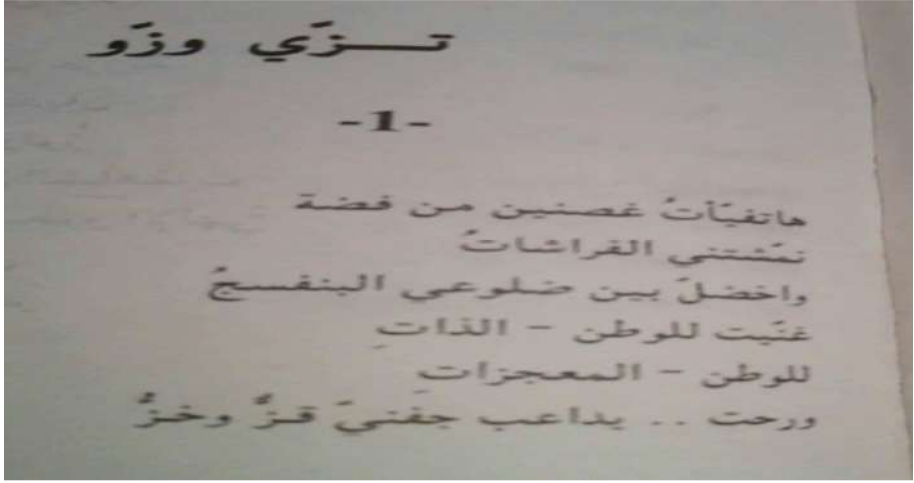 تـــزَي وزَو
-1-
هاتفيّأتُ غصنين من فضة
نمّشتني الفراشاتُ
واخضلّ بين ضلوعي البنفسجُ
غنّيت للوطن - الذاتِ
للوطن - المعجزاتِ
ورحت .. يداعب جفنيّ قزٌّ وخزٌّ